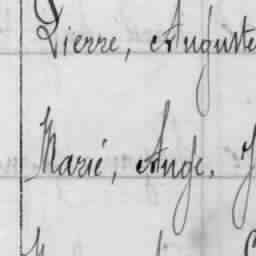 Pierre, Auguste
Marié, Ange,